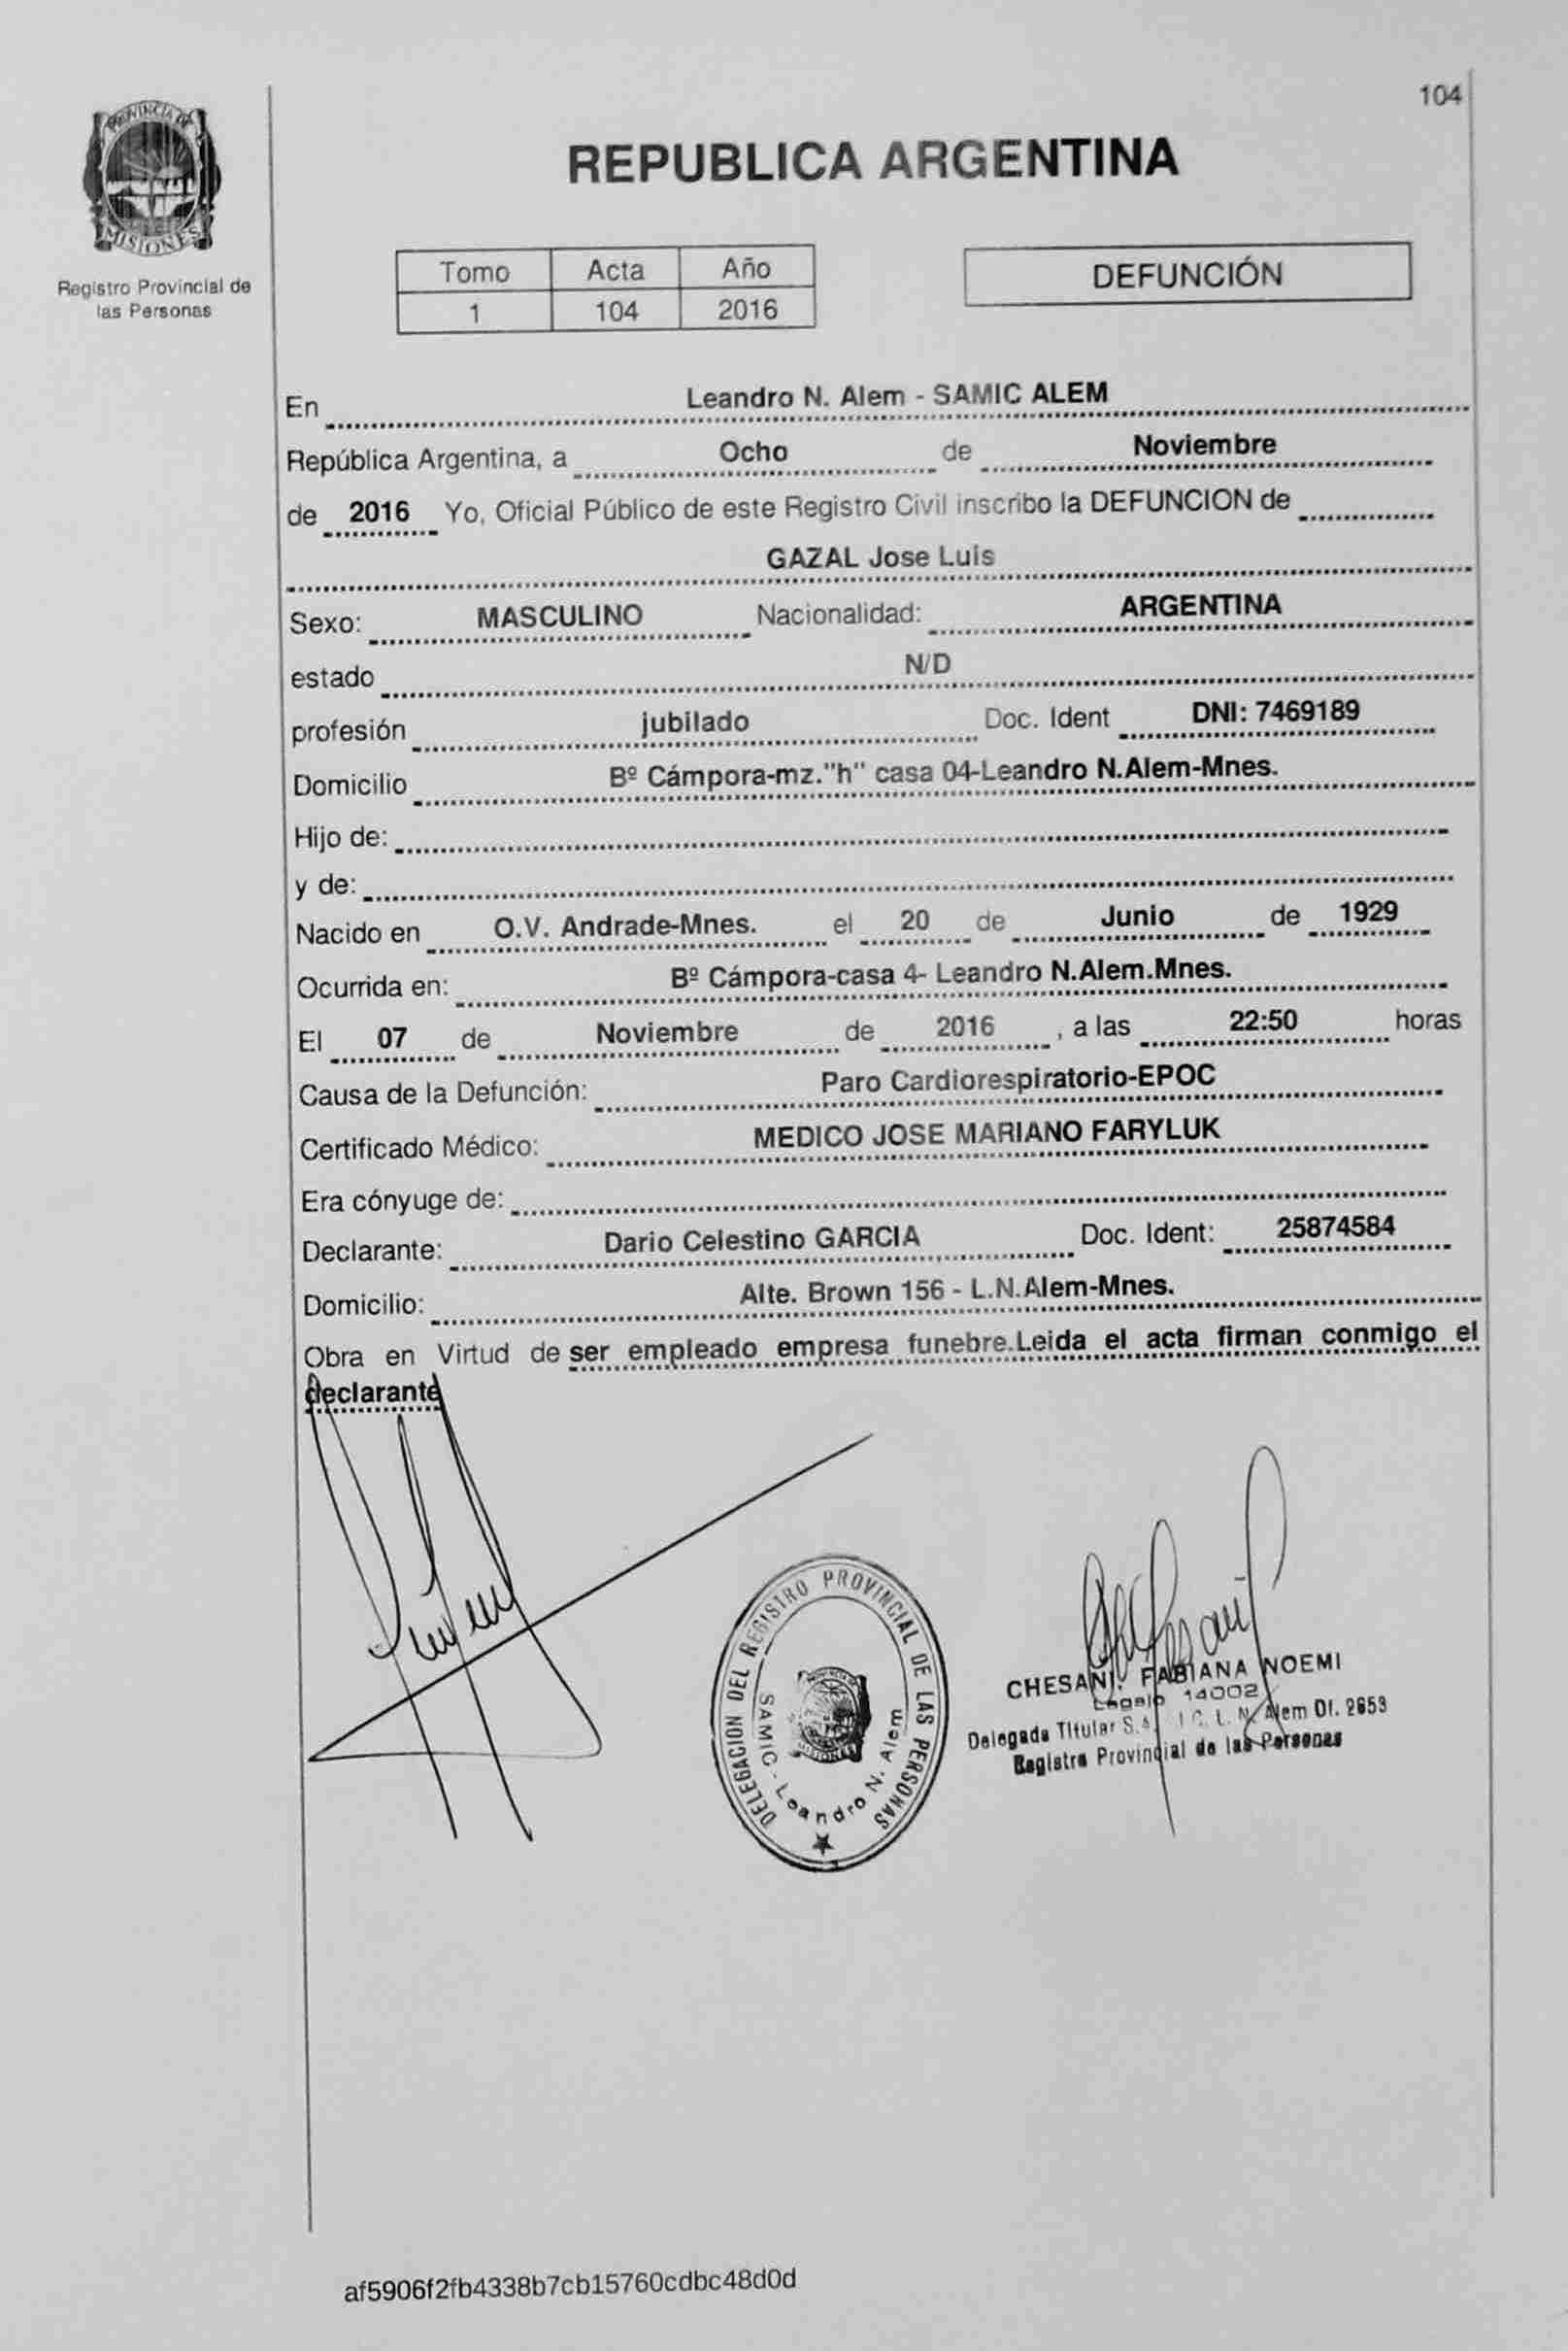 104
PROVINCIA DE
MISIONES
Registro Provincial de
las Personas
REPUBLICA ARGENTINA
Tomo Acta Año
1 104 2016
DEFUNCIÓN
En Leandro N. Alem - SAMIC ALEM
República Argentina, a Ocho de Noviembre
de 2016 Yo, Oficial Público de este Registro Civil inscribo la DEFUNCION de
GAZAL Jose Luis
Sexo: MASCULINO Nacionalidad: ARGENTINA
estado N/D
profesión jubilado Doc. Ident DNI: 7469189
Domicilio Bº Cámpora-mz."h" casa 04-Leandro N.Alem-Mnes.
Hijo de:
y de:
Nacido en O.V. Andrade-Mnes. el 20 de Junio de 1929
Ocurrida en: Bº Cámpora-casa 4- Leandro N.Alem.Mnes.
El 07 de Noviembre de 2016 , a las 22:50 horas
Causa de la Defunción: Paro Cardiorespiratorio-EPOC
Certificado Médico: MEDICO JOSE MARIANO FARYLUK
Era cónyuge de:
Declarante: Dario Celestino GARCIA Doc. Ident: 25874584
Domicilio: Alte. Brown 156 - L.N.Alem-Mnes.
Obra en Virtud de ser empleado empresa funebre.Leida el acta firman conmigo el
declarante
DELEGACION DEL REGISTRO PROVINCIAL DE LAS PERSONAS
SAMIC - Leandro N. Alem
CHESANI, FABIANA NOEMI
Legajo 14002
Delegada Titular L. N. Alem Of. 2653
Registro Provincial de las Personas
af5906f2fb4338b7cb15760cdbc48d0d